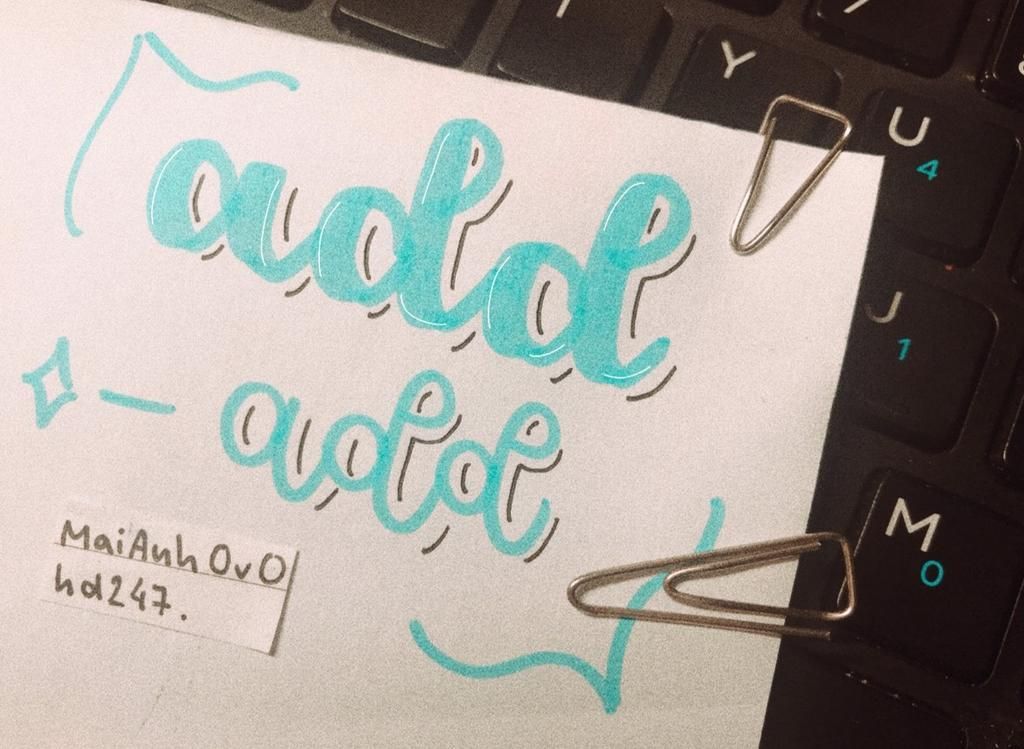 add
add
MaiAnh OvO
hd247.
Y
U
4
J
1
M
0